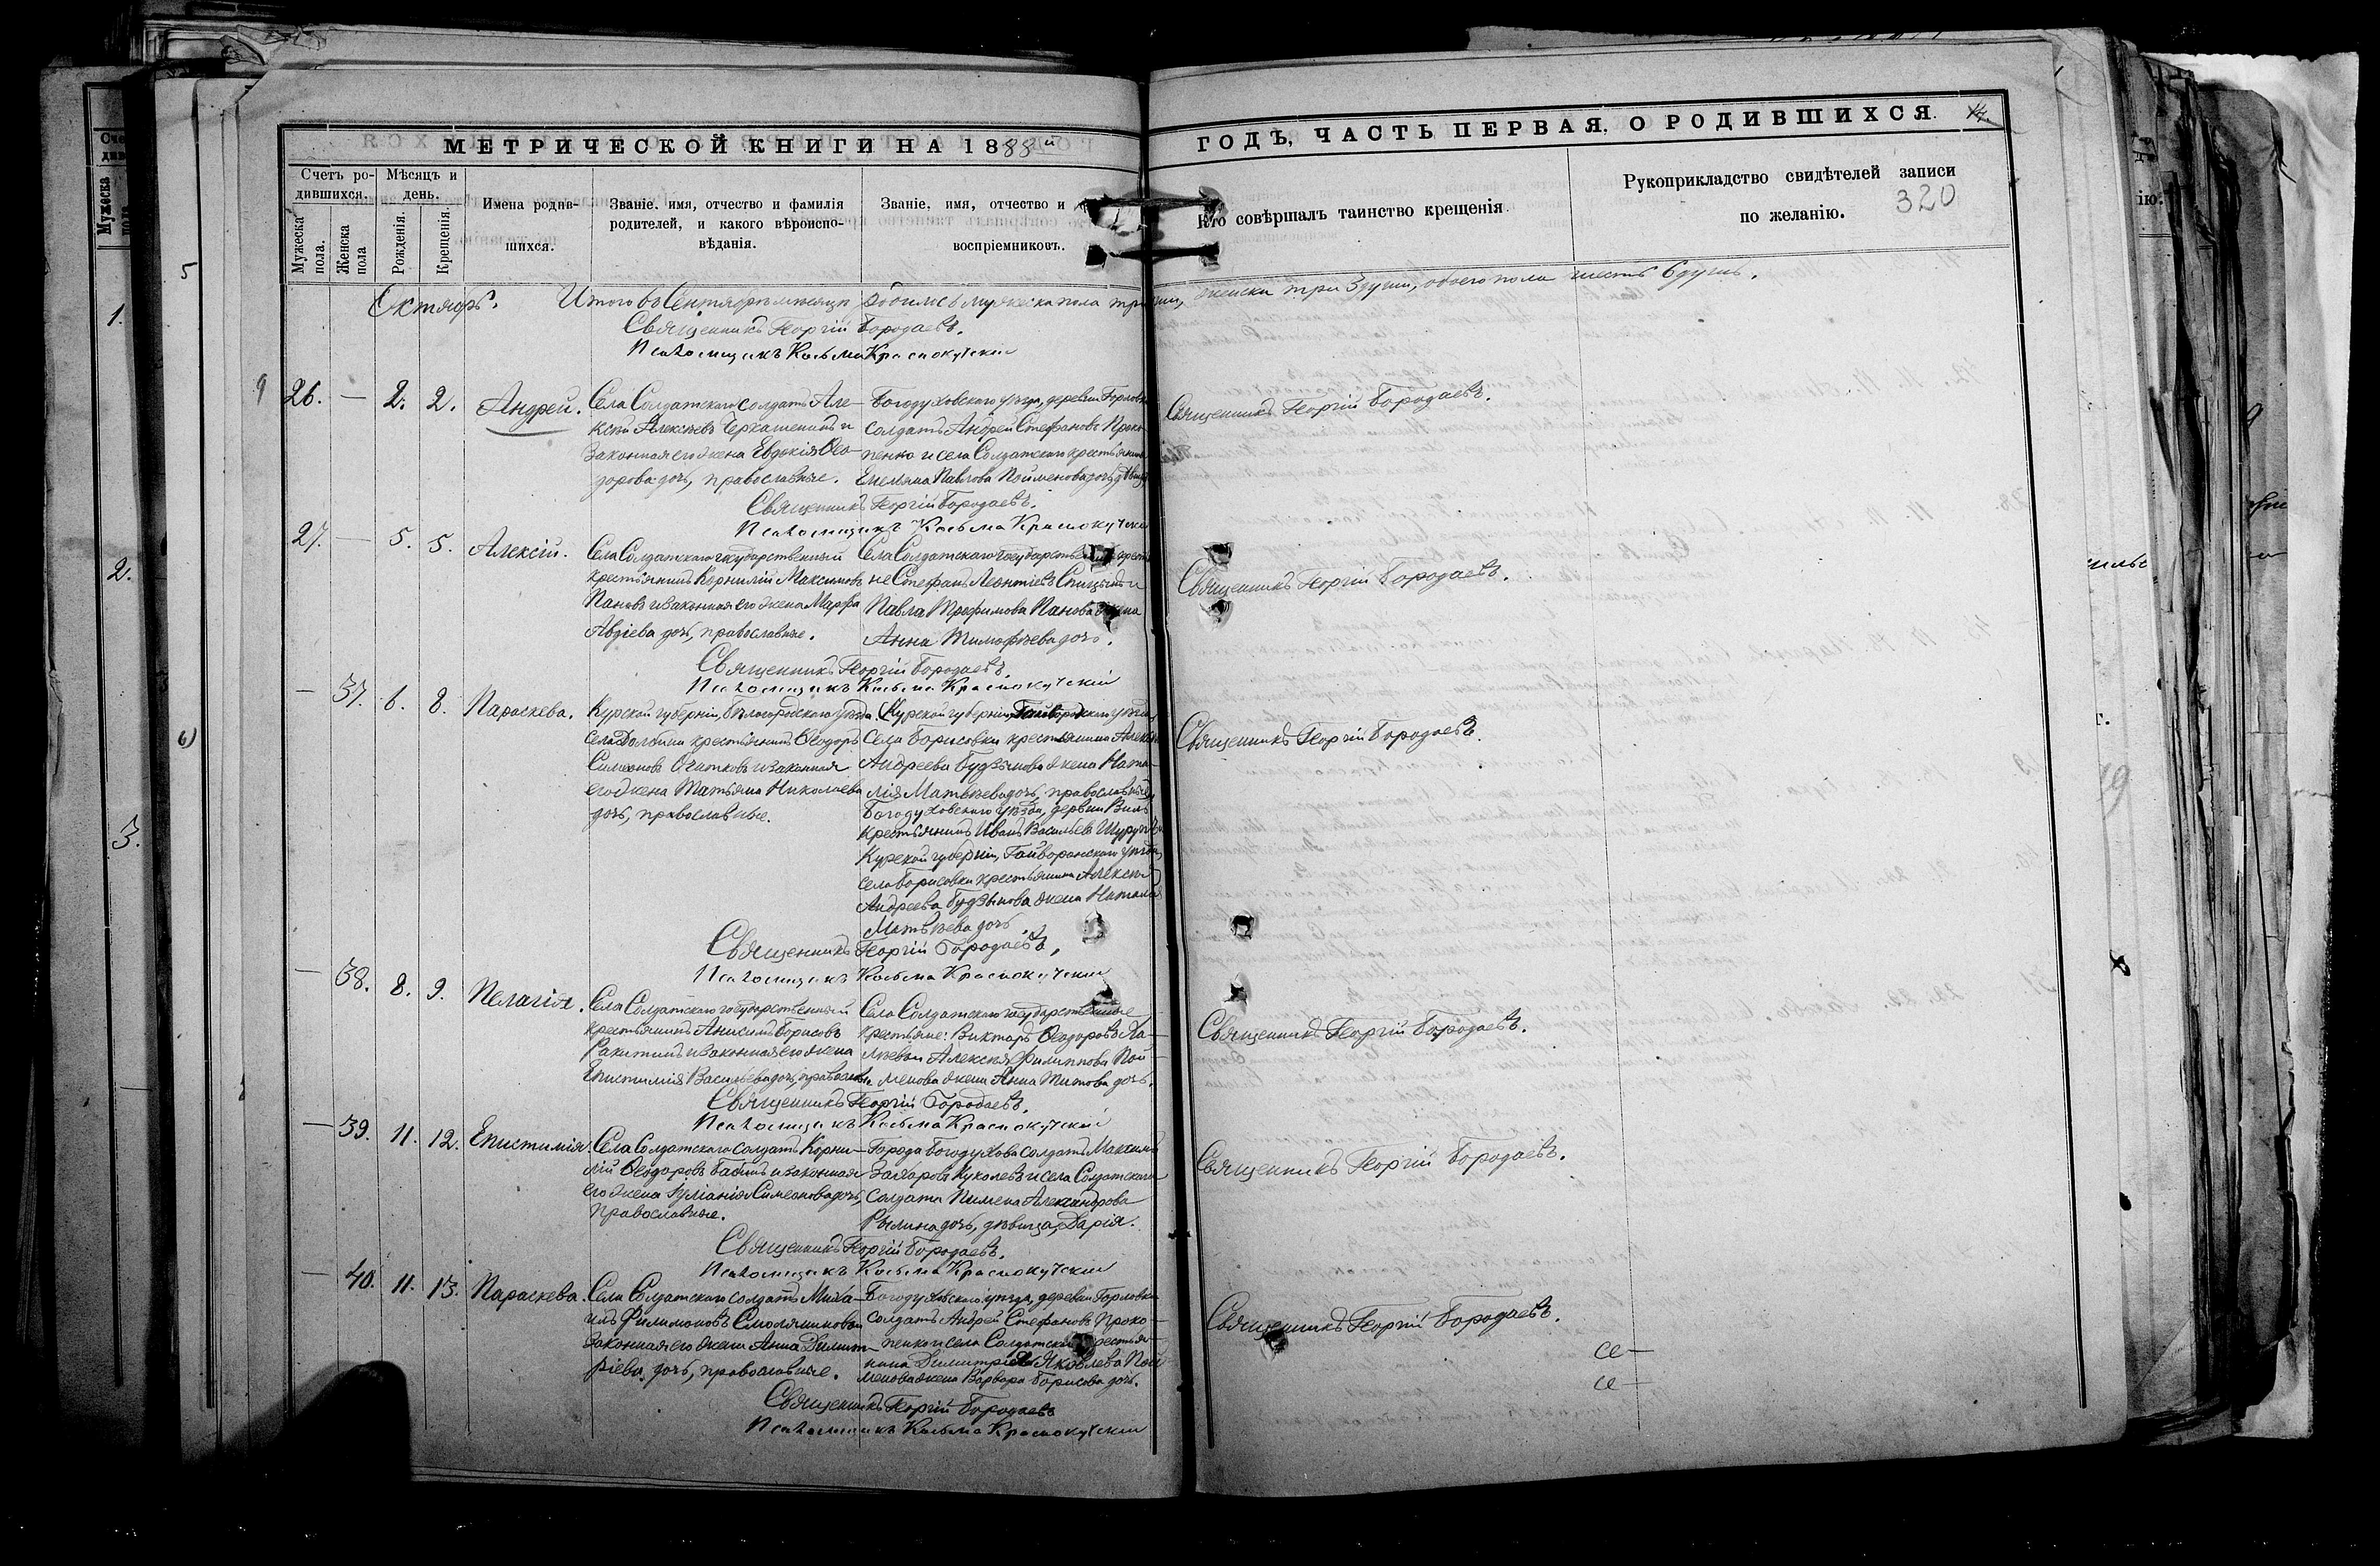 МЕТРИЧЕСКОЙ КНИГИ НА 1888й
Счетъ ро-
дившихся.
Мужеска пола.
Женска пола
Мѣсяцъ и
день.
Рожденія.
Крещенія.
Имена родив-
шихся.
Званіе, имя, отчество и фамилія
родителей, и какого вѣроиспо-
вѣданія.
Званіе, имя, отчество и
воспріемниковъ.
Октябрь. Итого въ Сентябрѣ мѣсяцѣ родилось мужеска пола три
Священникъ Георгій Бородаевъ.
Псаломщикъ Косьма Краснокутскій
26. — 2. 2. Андрей.
Села Солдатскаго солдатъ Але-
ксѣй Алексѣевъ Черкашенинъ и
законная его жена Евдокія Ѳео-
дорова дочь, православные.
Богодуховскаго уѣзда, деревни Горловки
солдатъ Андрей Стефановъ Проко-
пенко и села Солдатскаго крестьянина
Емеляна Павлова Пойменова дочь, дѣвица
Священникъ Георгій Бородаевъ.
Псаломщикъ Косьма Краснокутскій
27. — 5. 5. Алексій.
Села Солдатскаго государственный
крестьянинъ Корнилій Максимовъ
Пановъ и законная его жена Марфа
Авдіева дочь, православные.
Села Солдатскаго государственные кресть
не Стефанъ Леонтіевъ Спицынъ и
Павла Трофимова Панова жена
Анна Тимофѣева дочь.
Священникъ Георгій Бородаевъ.
Псаломщикъ Косьма Краснокутскій
— 37. 6. 8. Параскева.
Курской губерніи, Бѣлогородскаго уѣзда,
села Долбина крестьянинъ Ѳеодоръ
Симеоновъ и законная
его жена Татьяна Николаева
дочь, православные.
Курской губерніи, Гайворонскаго уѣзда
села Борисовки крестьянина Алексѣя
Андреева Будзынова жена Ната-
лія Матвѣева дочь, православные
Богодуховскаго уѣзда, деревни
крестьянинъ Иванъ Васильевъ
Курской губерніи, Гайворонскаго уѣзда,
села Борисовки крестьянина Алексѣя
Андреева Будзынова жена Наталія
Матвѣева дочь.
Священникъ Георгій Бородаевъ.
Псаломщикъ Косьма Краснокутскій
— 38. 8. 9. Пелагія.
Села Солдатскаго государственный
крестьянинъ Анисимъ Борисовъ
Ракитинъ и законная его жена
Епистимія Васильева дочь, православные
Села Солдатскаго государственные
крестьяне: Викторъ Ѳеодоровъ
Алексѣя Филиппова Пой-
менова жена Анна Титова дочь.
Священникъ Георгій Бородаевъ.
Псаломщикъ Косьма Краснокутскій
— 39. 11. 12. Епистимія.
Села Солдатскаго солдатъ Корни-
лій Ѳеодоровъ Бабинъ и законная
его жена Іуліанія Симеонова дочь,
православные.
Города Богодухова солдатъ Максимъ
Захаровъ Куколевъ и села Солдатскаго
солдата Пимена Александрова
Рылина дочь, дѣвица, Дарія.
Священникъ Георгій Бородаевъ.
Псаломщикъ Косьма Краснокутскій
— 40. 11. 13. Параскева.
Села Солдатскаго солдатъ Миха-
илъ Филимоновъ Смоляниновъ и
законная его жена Анна Димит-
ріева дочь, православные.
Богодуховскаго уѣзда, деревни Горловки
солдатъ Андрей Стефановъ Проко-
пенко и села Солдатскаго крестья-
нина Димитрія Яковлева Пой-
менова жена Варвара Борисова дочь.
Священникъ Георгій Бородаевъ
Псаломщикъ Косьма Краснокутскій
ГОДЪ, ЧАСТЬ ПЕРВАЯ, О РОДИВШИХСЯ.
Кто совѣршалъ таинство крещенія.
Рукоприкладство свидѣтелей записи
по желанію.
320
женска три 3 души, обоего пола шесть 6 душъ.
Священникъ Георгій Бородаевъ.
Священникъ Георгій Бородаевъ.
Священникъ Георгій Бородаевъ.
Священникъ Георгій Бородаевъ.
Священникъ Георгій Бородаевъ.
Священникъ Георгій Бородаевъ.